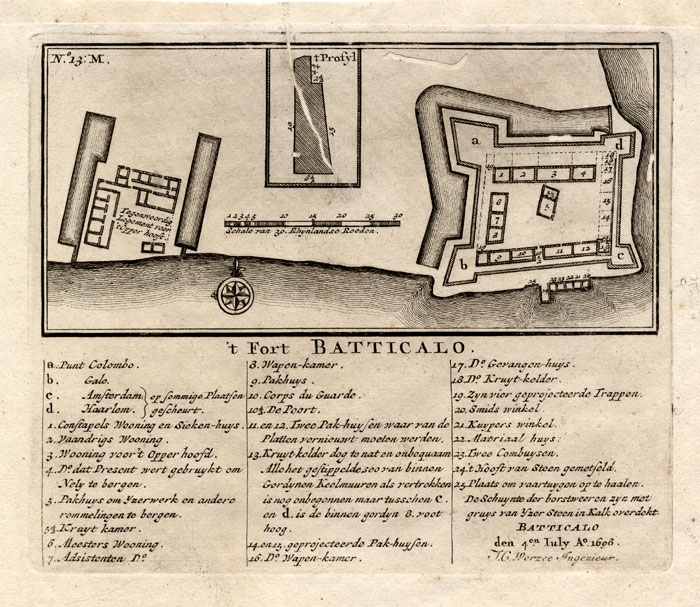 N.º 13: M.
't Profyl
10
15
6½
Tegenwoordig
Logement voor
't Opper hooft.
1 2 3 4 5 10 15 20 25 30
Schale van 30. Rhynlandse Roeden.
a
d
1 2 3 4
5
6
7
8
b
9 10 11 12
c
't Fort BATTICALO.
a. Punt Colombo.
b. Gale.
c. Amsterdam } op sommige Plaatsen
d. Haarlem. } gescheurt.
1. Constapels Wooning en Sieken-huys.
2. Vaandrigs Wooning.
3. Wooning voor 't Opper hoofd.
4. Dº. dat Present wert gebruykt om
Nely te bergen.
5. Pakhuys om Yzerwerk en andere
rommelingen te bergen.
5½. Kruyt kamer.
6. Meesters Wooning.
7. Adsistenten Dº.
8. Wapen-kamer.
9. Pakhuys.
10. Corps du Guarde.
10½. De Poort.
11. en 12. Twee Pak-huysen waar van de
Platten vernieuwt moeten werden.
13. Kruyt kelder dog te nat en onbequaam
Alle het gestippelde soo van binnen
Gordynen Keelmuuren als vertrekken
is nog onbegonnen maar tusschen c.
en d. is de binnen gordyn 8. voet
hoog.
14. en 15. geprojecteerde Pak-huysen.
16. Dº. Wapen-kamer.
17. Dº. Gevangen-huys.
18. Dº. Kruyt-kelder.
19. Zyn vier geprojecteerde Trappen.
20. Smids winkel.
21. Kuypers winkel.
22. Matriaal huys.
23. Twee Combuysen.
24. 't Hooft van Steen gemetseld.
25. Plaats om vaartuygen op te haalen.
De Schuynte der borstweeren zyn met
gruys van Yzer Steen in Kalk overdekt.
BATTICALO
den 4en July Aº. 1698.
Ingenieur.